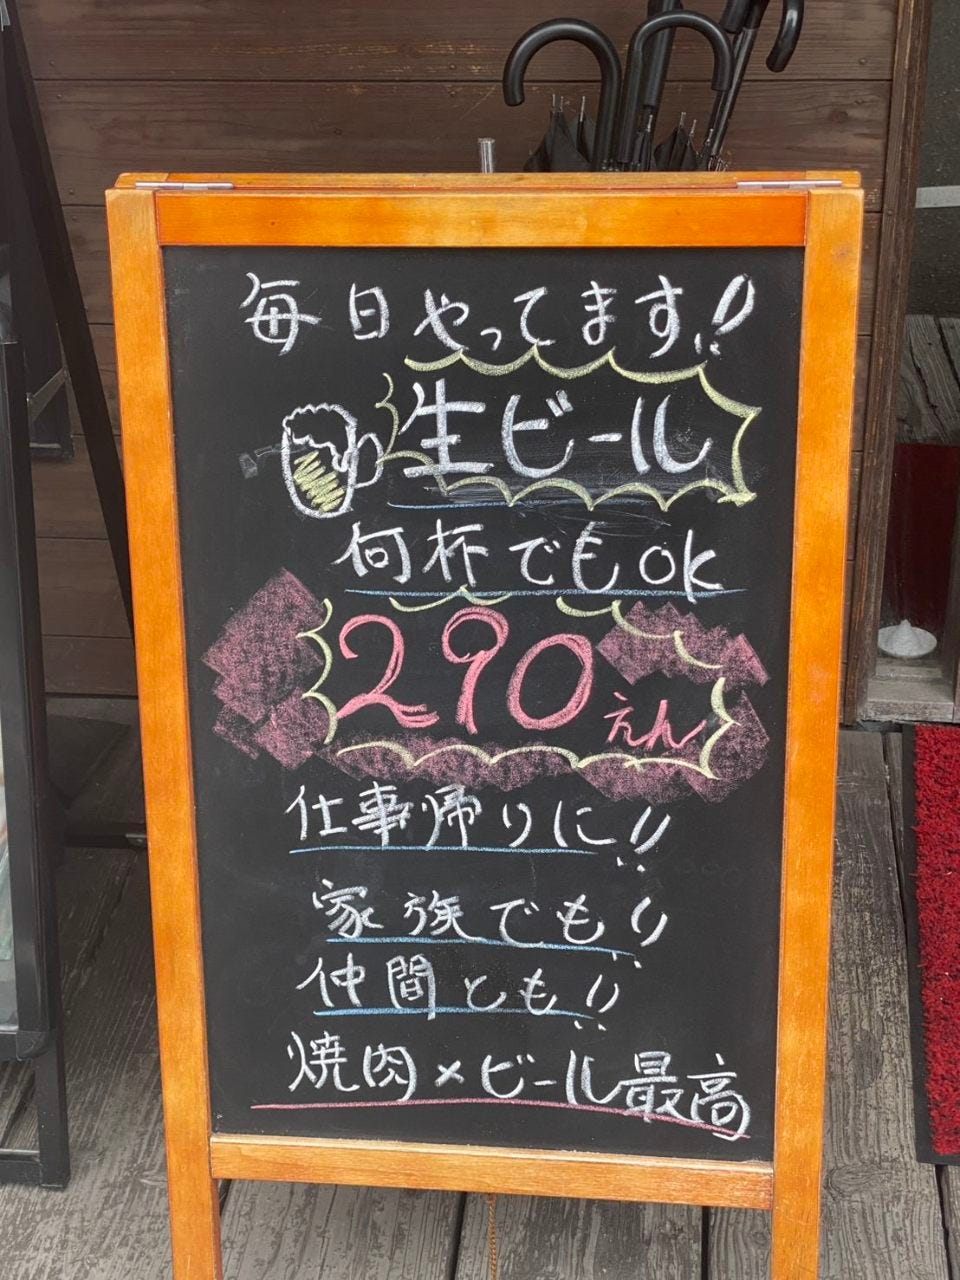 毎日やってます!!
生ビール
何杯でもOK
290えん
仕事帰りに!!
家族でも!!
仲間とも!!
焼肉×ビール最高